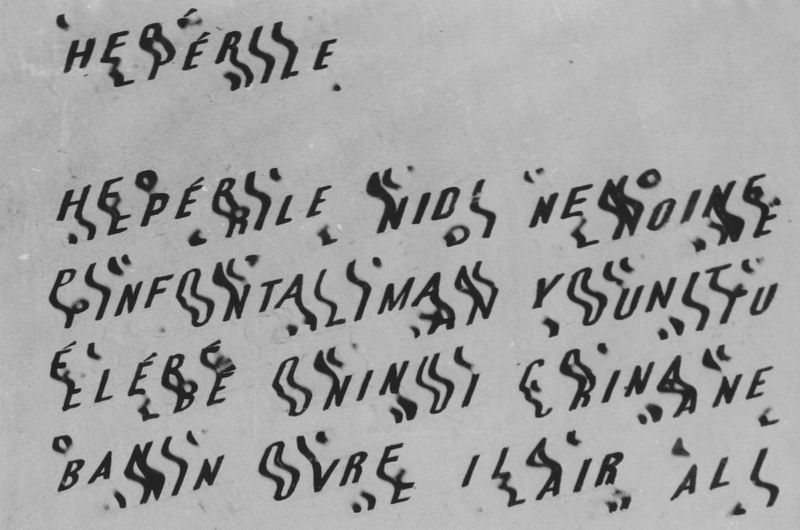 HEPÉRILE
HEPÉRILE NIDI NENOINE
PINFONTALIMAN YOUNITU
ÉLÉBÉ CRINANE
BANIN ILAIR ALI